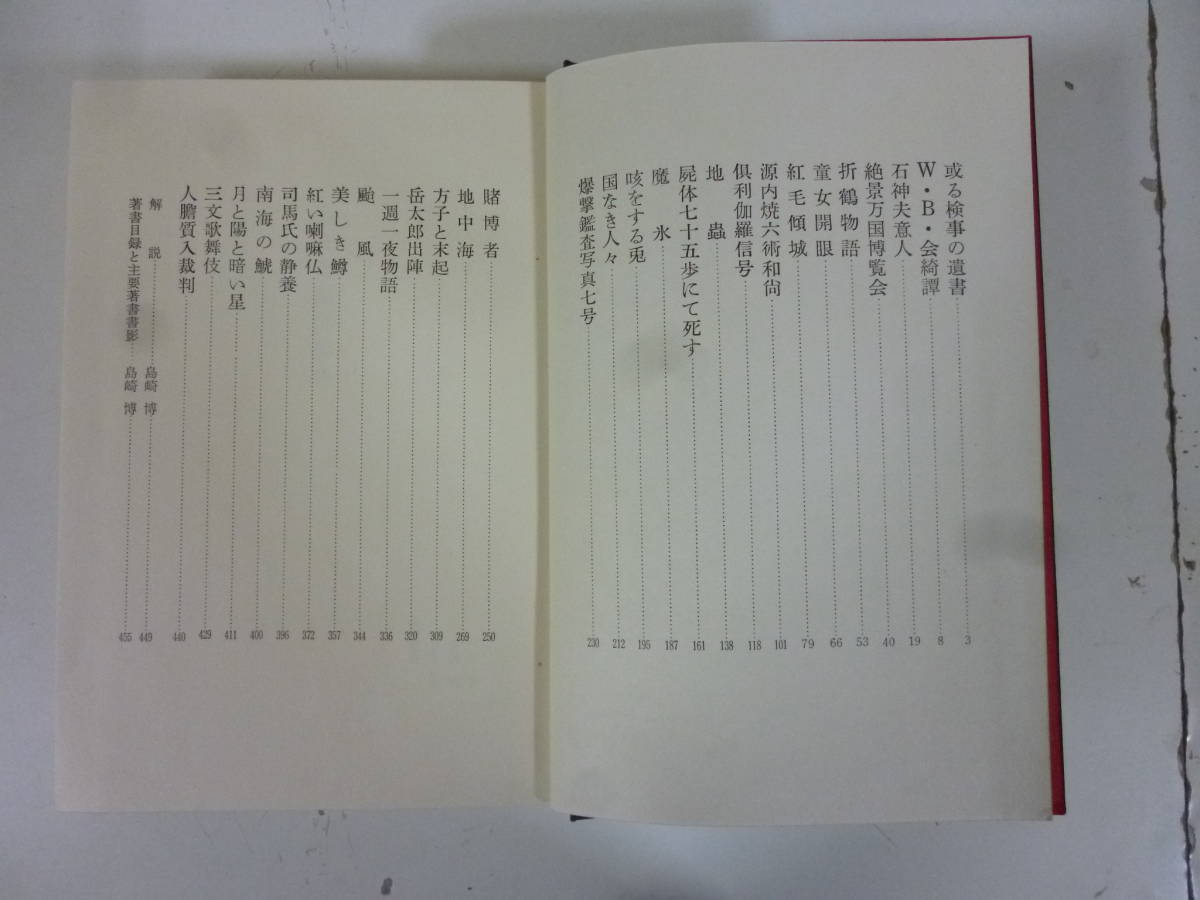 或る検事の遺書……3
W・B・会綺譚……8
石神夫意人……19
絶景万国博覧会……40
折鶴物語……53
童女開眼……66
紅毛傾城……79
源内焼六術和尚……101
倶利伽羅信号……118
地蟲……138
屍体七十五歩にて死す……161
魔氷……187
咳をする兎……195
国なき人々……212
爆撃鑑査写真七号……230
賭博者……250
地中海……269
方子と末起……309
岳太郎出陣……320
一週一夜物語……336
颱風……344
美しき鱒……357
紅い喇嘛仏……372
司馬氏の静養……396
南海の鯱……400
月と陽と暗い星……411
三文歌舞伎……429
人膽質入裁判……440
解説……島崎博……449
著書目録と主要著書書影……島崎博……455